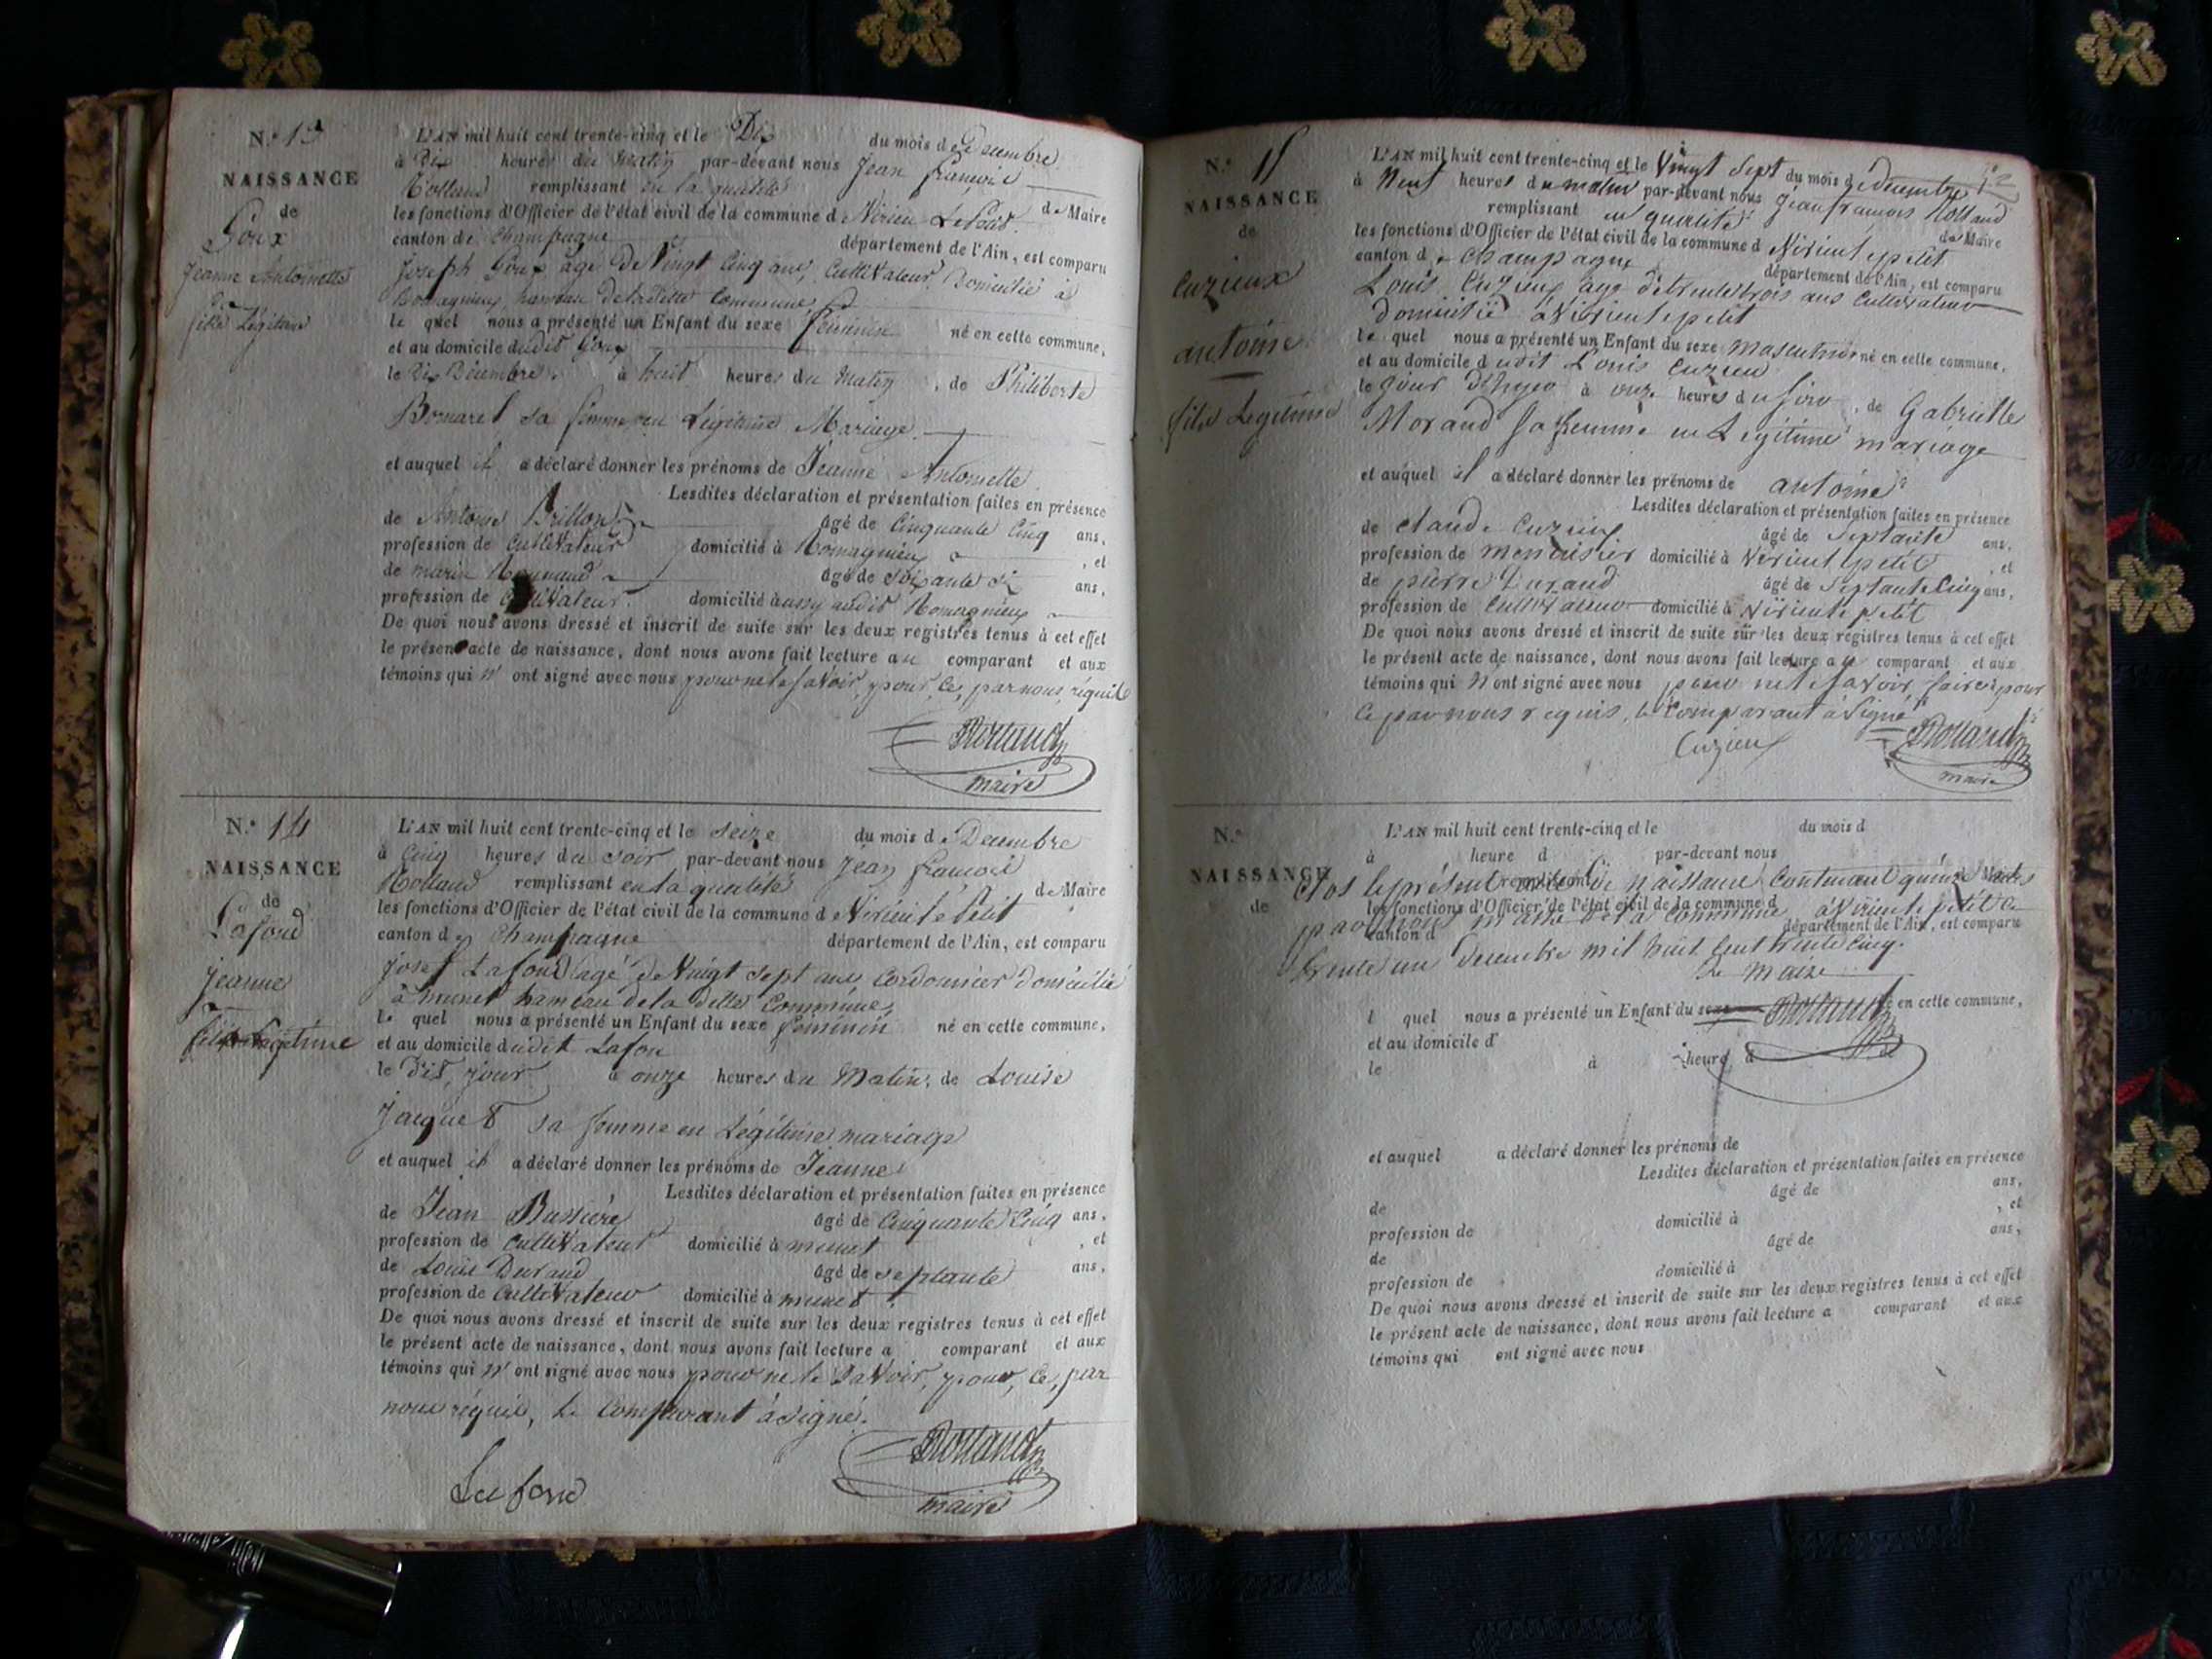 N.o 13
NAISSANCE
de
Goux
Jeanne Antoinette
fille Légitime
L'AN mil huit cent trente-cinq et le Dix du mois de Decembre
à Dix heures du Matin par-devant nous Jean francois
Rolland remplissant en la qualité de Maire
les fonctions d'Officier de l'état civil de la commune de Virieu Le Petit
canton de Champagne département de l'Ain, est comparu
Joseph Goux agé de Vingt Cinq ans, Cultivateur, Domicilié à
Romagnieux, hameau de la ditte Commune,
le quel nous a présenté un Enfant du sexe féminin né en cette commune,
et au domicile dudit Goux
le Dix Décembre à huit heures du Matin, de Philiberte
sa femme en Légitime Mariage
et auquel il a déclaré donner les prénoms de Jeanne Antoinette
Lesdites déclaration et présentation faites en présence
de Antoine Brillon âgé de Cinquante Cinq ans,
profession de Cultivateur domicilié à Romagnieux, et
de marin âgé de soixante six ans,
profession de Cultivateur domicilié aussy audit Romagnieux
De quoi nous avons dressé et inscrit de suite sur les deux registres tenus à cet effet
le présent acte de naissance, dont nous avons fait lecture au comparant et aux
témoins qui n'ont signé avec nous pour ne le savoir, pour ce, par nous, réquis
Rolland
maire
N.o 14
NAISSANCE
de
Lafond
jeanne
fille Légitime
L'AN mil huit cent trente-cinq et le seize du mois de Decembre
à Cinq heures du soir par-devant nous Jean francois
Rolland remplissant en la qualité de Maire
les fonctions d'Officier de l'état civil de la commune de Virieu Le Petit
canton de Champagne département de l'Ain, est comparu
Josef Lafond agé de Vingt sept ans Cordonnier domicilié
à munet hameau de la ditte Commune,
le quel nous a présenté un Enfant du sexe féminin né en cette commune,
et au domicile dudit Lafon
le dit, jour à onze heures du Matin, de Louise
Jacquet sa femme en Légitime mariage
et auquel il a déclaré donner les prénoms de Jeanne
Lesdites déclaration et présentation faites en présence
de Jean Bussière âgé de Cinquante Cinq ans,
profession de Cultivateur domicilié à munet, et
de Louis Durand âgé de septante ans,
profession de Cultivateur domicilié à munet
De quoi nous avons dressé et inscrit de suite sur les deux registres tenus à cet effet
le présent acte de naissance, dont nous avons fait lecture a comparant et aux
témoins qui n'ont signé avec nous pour ne le savoir, pour, ce, par
nous réquis, le Comparant à signé.
Lafond
Rolland
maire
N.o 15
NAISSANCE
de
Cuzieux
antoine
fils Legitime
L'AN mil huit cent trente-cinq et le Vingt Sept du mois de decembre
à Neuf heures du matin par-devant nous jean francois Rolland
remplissant en qualité de Maire
les fonctions d'Officier de l'état civil de la commune d Virieu le petit
canton de Champagne département de l'Ain, est comparu
Louis Cuzieux age de trente trois ans Cultivateur
domicilié à Virieu le petit
le quel nous a présenté un Enfant du sexe masculin né en cette commune,
et au domicile dudit Louis Cuzieu
le jour d'hyer à onze heures du soir, de Gabrielle
Morand sa femme en Legitime mariage
et auquel il a déclaré donner les prénoms de antoine
Lesdites déclaration et présentation faites en présence
de claude Cuzieux âgé de Septante ans,
profession de menuisier domicilié à Virieu le petit, et
de pierre Durand âgé de Septante Cinq ans,
profession de Cultivateur domicilié à Virieu le petit
De quoi nous avons dressé et inscrit de suite sur les deux registres tenus à cet effet
le présent acte de naissance, dont nous avons fait lecture a u comparant et aux
témoins qui n'ont signé avec nous pour ne le savoir faire pour
ce par nous requis, le Comparant à signé
Cuzieux
Rolland
maire
N.o
NAISSANCE
de
L'AN mil huit cent trente-cinq et le du mois d
à heure d par-devant nous
Clos le présent de naissance Contenant quinze
remplissant Maire
les fonctions d'Officier de l'état civil de la commune d
par nous maire de la Commune à Virieu le petit le
canton d département de l'Ain, est comparu
trente un decembre mil huit Cent trente Cinq.
Le maire
Rolland
l quel nous a présenté un Enfant du sexe né en cette commune,
et au domicile d
le à heure d
et auquel a déclaré donner les prénoms de
Lesdites déclaration et présentation faites en présence
de âgé de ans,
profession de domicilié à , et
de âgé de ans,
profession de domicilié à
De quoi nous avons dressé et inscrit de suite sur les deux registres tenus à cet effet
le présent acte de naissance, dont nous avons fait lecture a comparant et aux
témoins qui ont signé avec nous